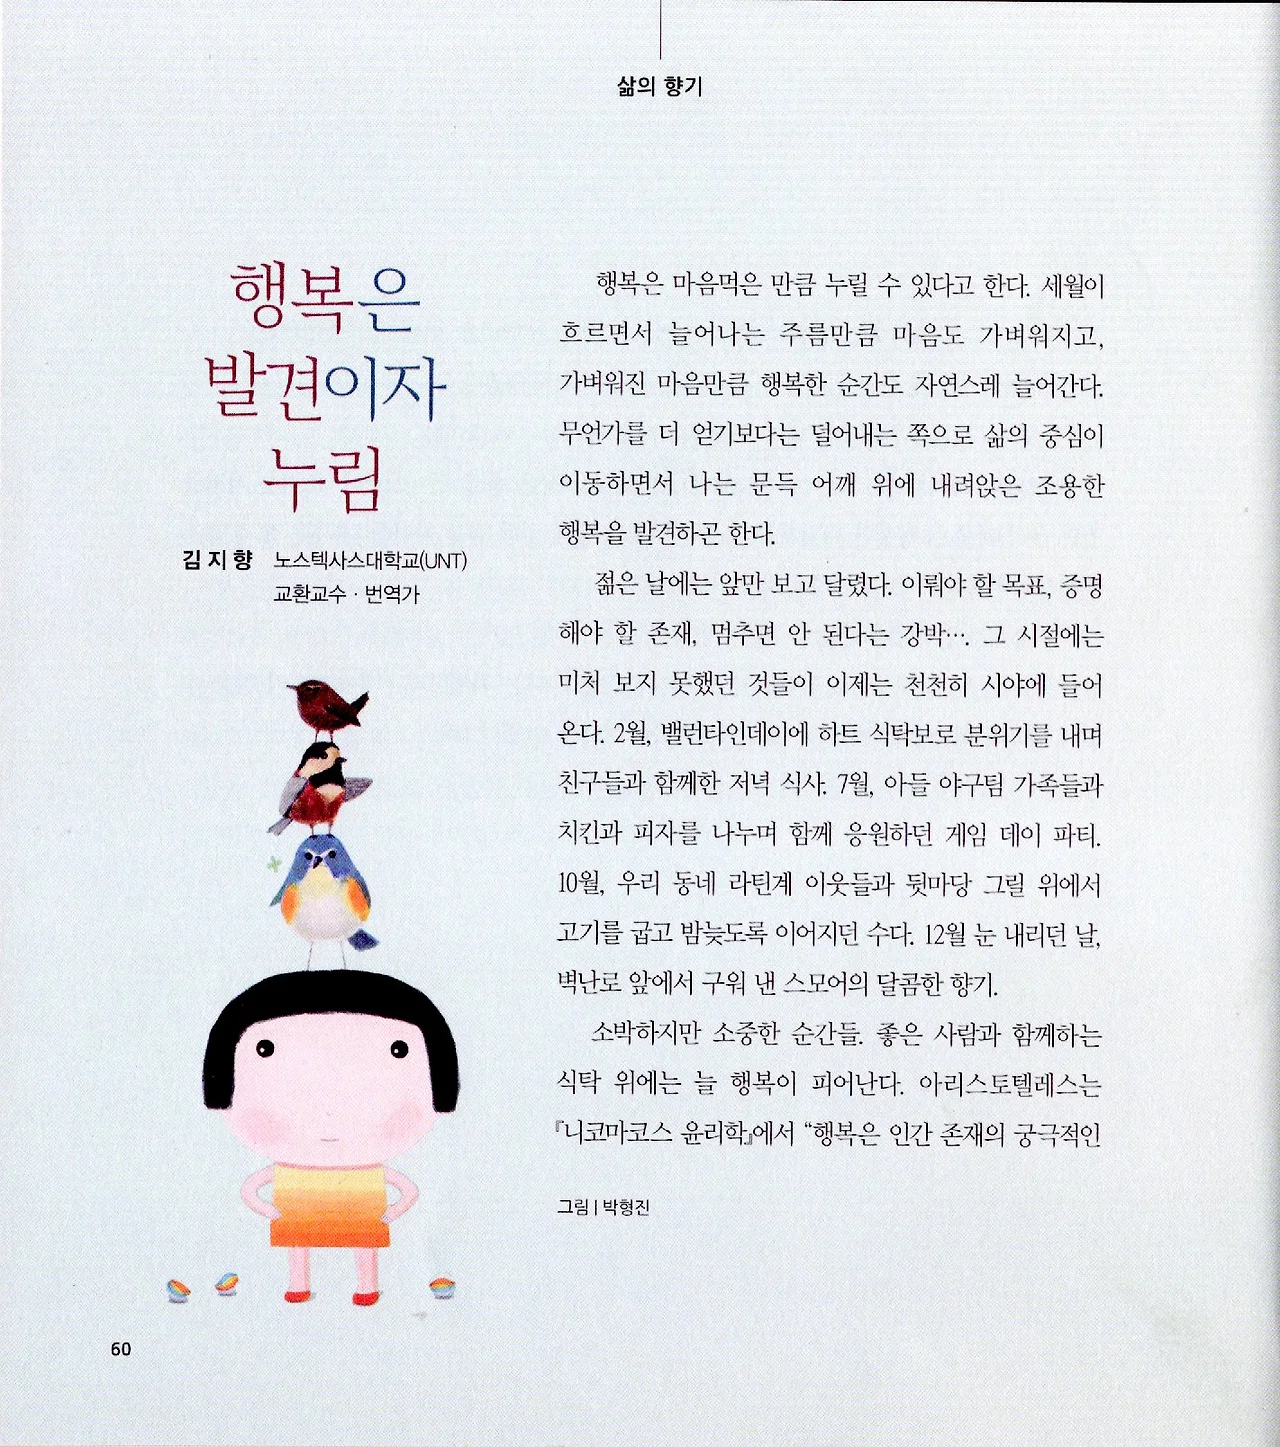 삶의 향기
행복은
발견이자
누림
김지향 노스텍사스대학교(UNT)
교환교수 · 번역가
행복은 마음먹은 만큼 누릴 수 있다고 한다. 세월이
흐르면서 늘어나는 주름만큼 마음도 가벼워지고,
가벼워진 마음만큼 행복한 순간도 자연스레 늘어간다.
무언가를 더 얻기보다는 덜어내는 쪽으로 삶의 중심이
이동하면서 나는 문득 어깨 위에 내려앉은 조용한
행복을 발견하곤 한다.
젊은 날에는 앞만 보고 달렸다. 이뤄야 할 목표, 증명
해야 할 존재, 멈추면 안 된다는 강박…. 그 시절에는
미처 보지 못했던 것들이 이제는 천천히 시야에 들어
온다. 2월, 밸런타인데이에 하트 식탁보로 분위기를 내며
친구들과 함께한 저녁 식사. 7월, 아들 야구팀 가족들과
치킨과 피자를 나누며 함께 응원하던 게임 데이 파티.
10월, 우리 동네 라틴계 이웃들과 뒷마당 그릴 위에서
고기를 굽고 밤늦도록 이어지던 수다. 12월 눈 내리던 날,
벽난로 앞에서 구워 낸 스모어의 달콤한 향기.
소박하지만 소중한 순간들. 좋은 사람과 함께하는
식탁 위에는 늘 행복이 피어난다. 아리스토텔레스는
『니코마코스 윤리학』에서 “행복은 인간 존재의 궁극적인
그림 | 박형진
60